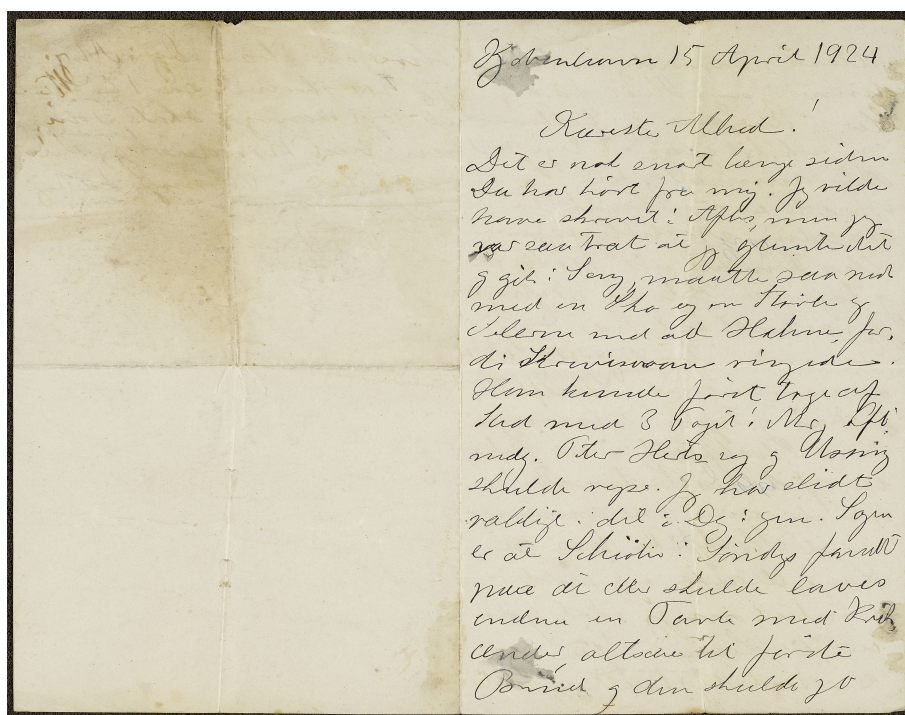 Kjøbenhavn 15 April 1924
Kæreste Alhed!
Det er nok snart længe siden
Du har hørt fra mig. Jeg vilde
have skrevet i Aftes, men jeg
var saa træt at jeg glemte det
og gik i Seng, maatte saa ned
med en Sko og en Støvle og
Selerne ned ad Halene, for-
di Skrivesvane ringede.
Han kunde først tage af
Sted med 3 Toget i
Peter Hertz syg og Ussing
skulde rejse. Jeg har slidt
vældigt i det i Dag igen. Sagen
er at Schiøtz i Søndags fandt
paa at der skulde laves
endnu en Tavle med Krik-
ænder, altsaa til første
Bind og den skulde jo